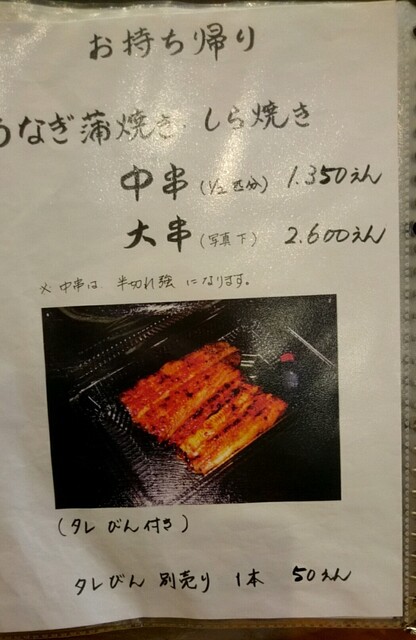 お持ち帰り
うなぎ蒲焼き・しら焼き
中串(1/2匹分) 1.350えん
大串(写真下) 2.600えん
※中串は 半切れ強 になります。
(タレびん付き)
タレびん 別売り 1本 50えん